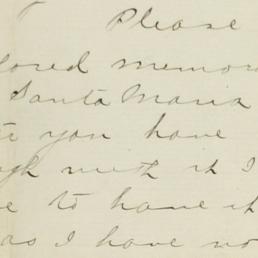 Please
memor
Santa Maria
you have
with it I
to have it
as I have no